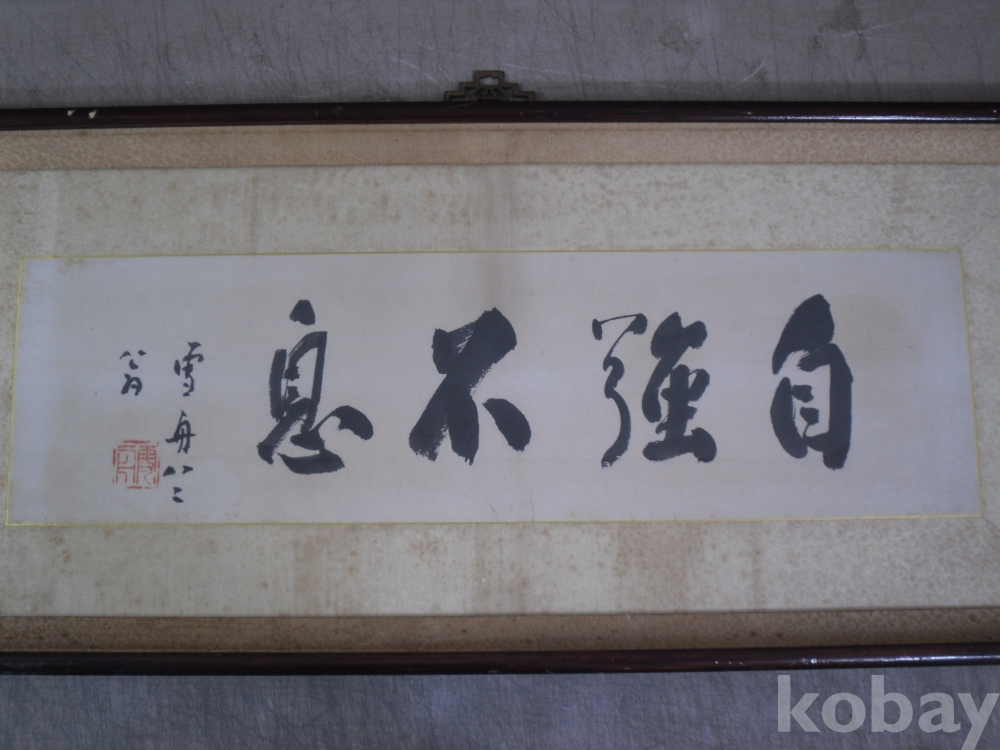 自強不息
雪舟八二
翁
kobay